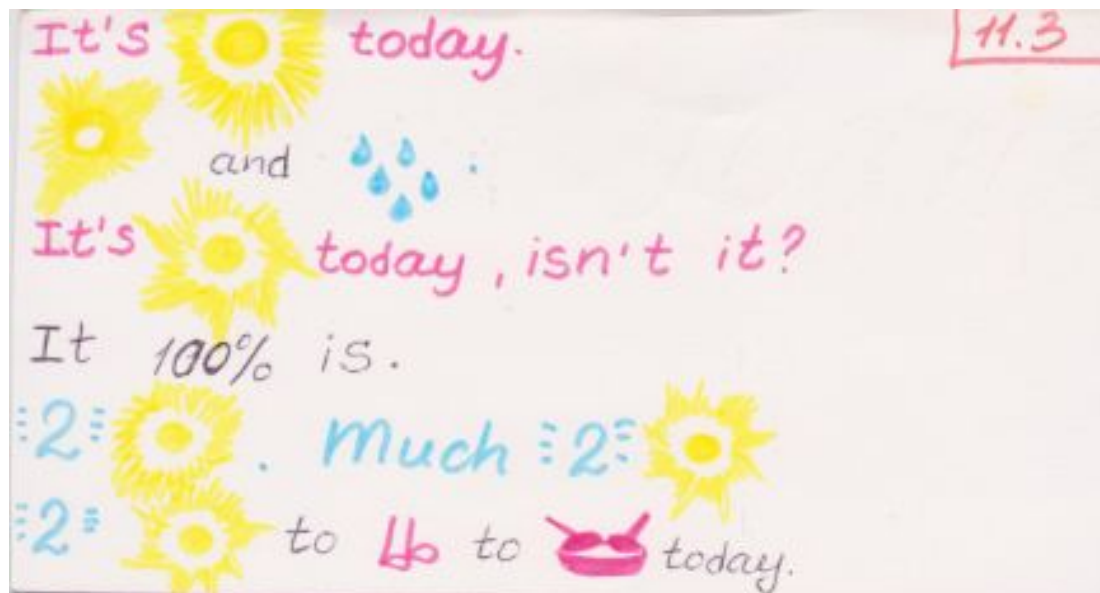 It's today.
11.3
and
It's today, isn't it?
It 100% is.
2 . Much 2
2 to to today.